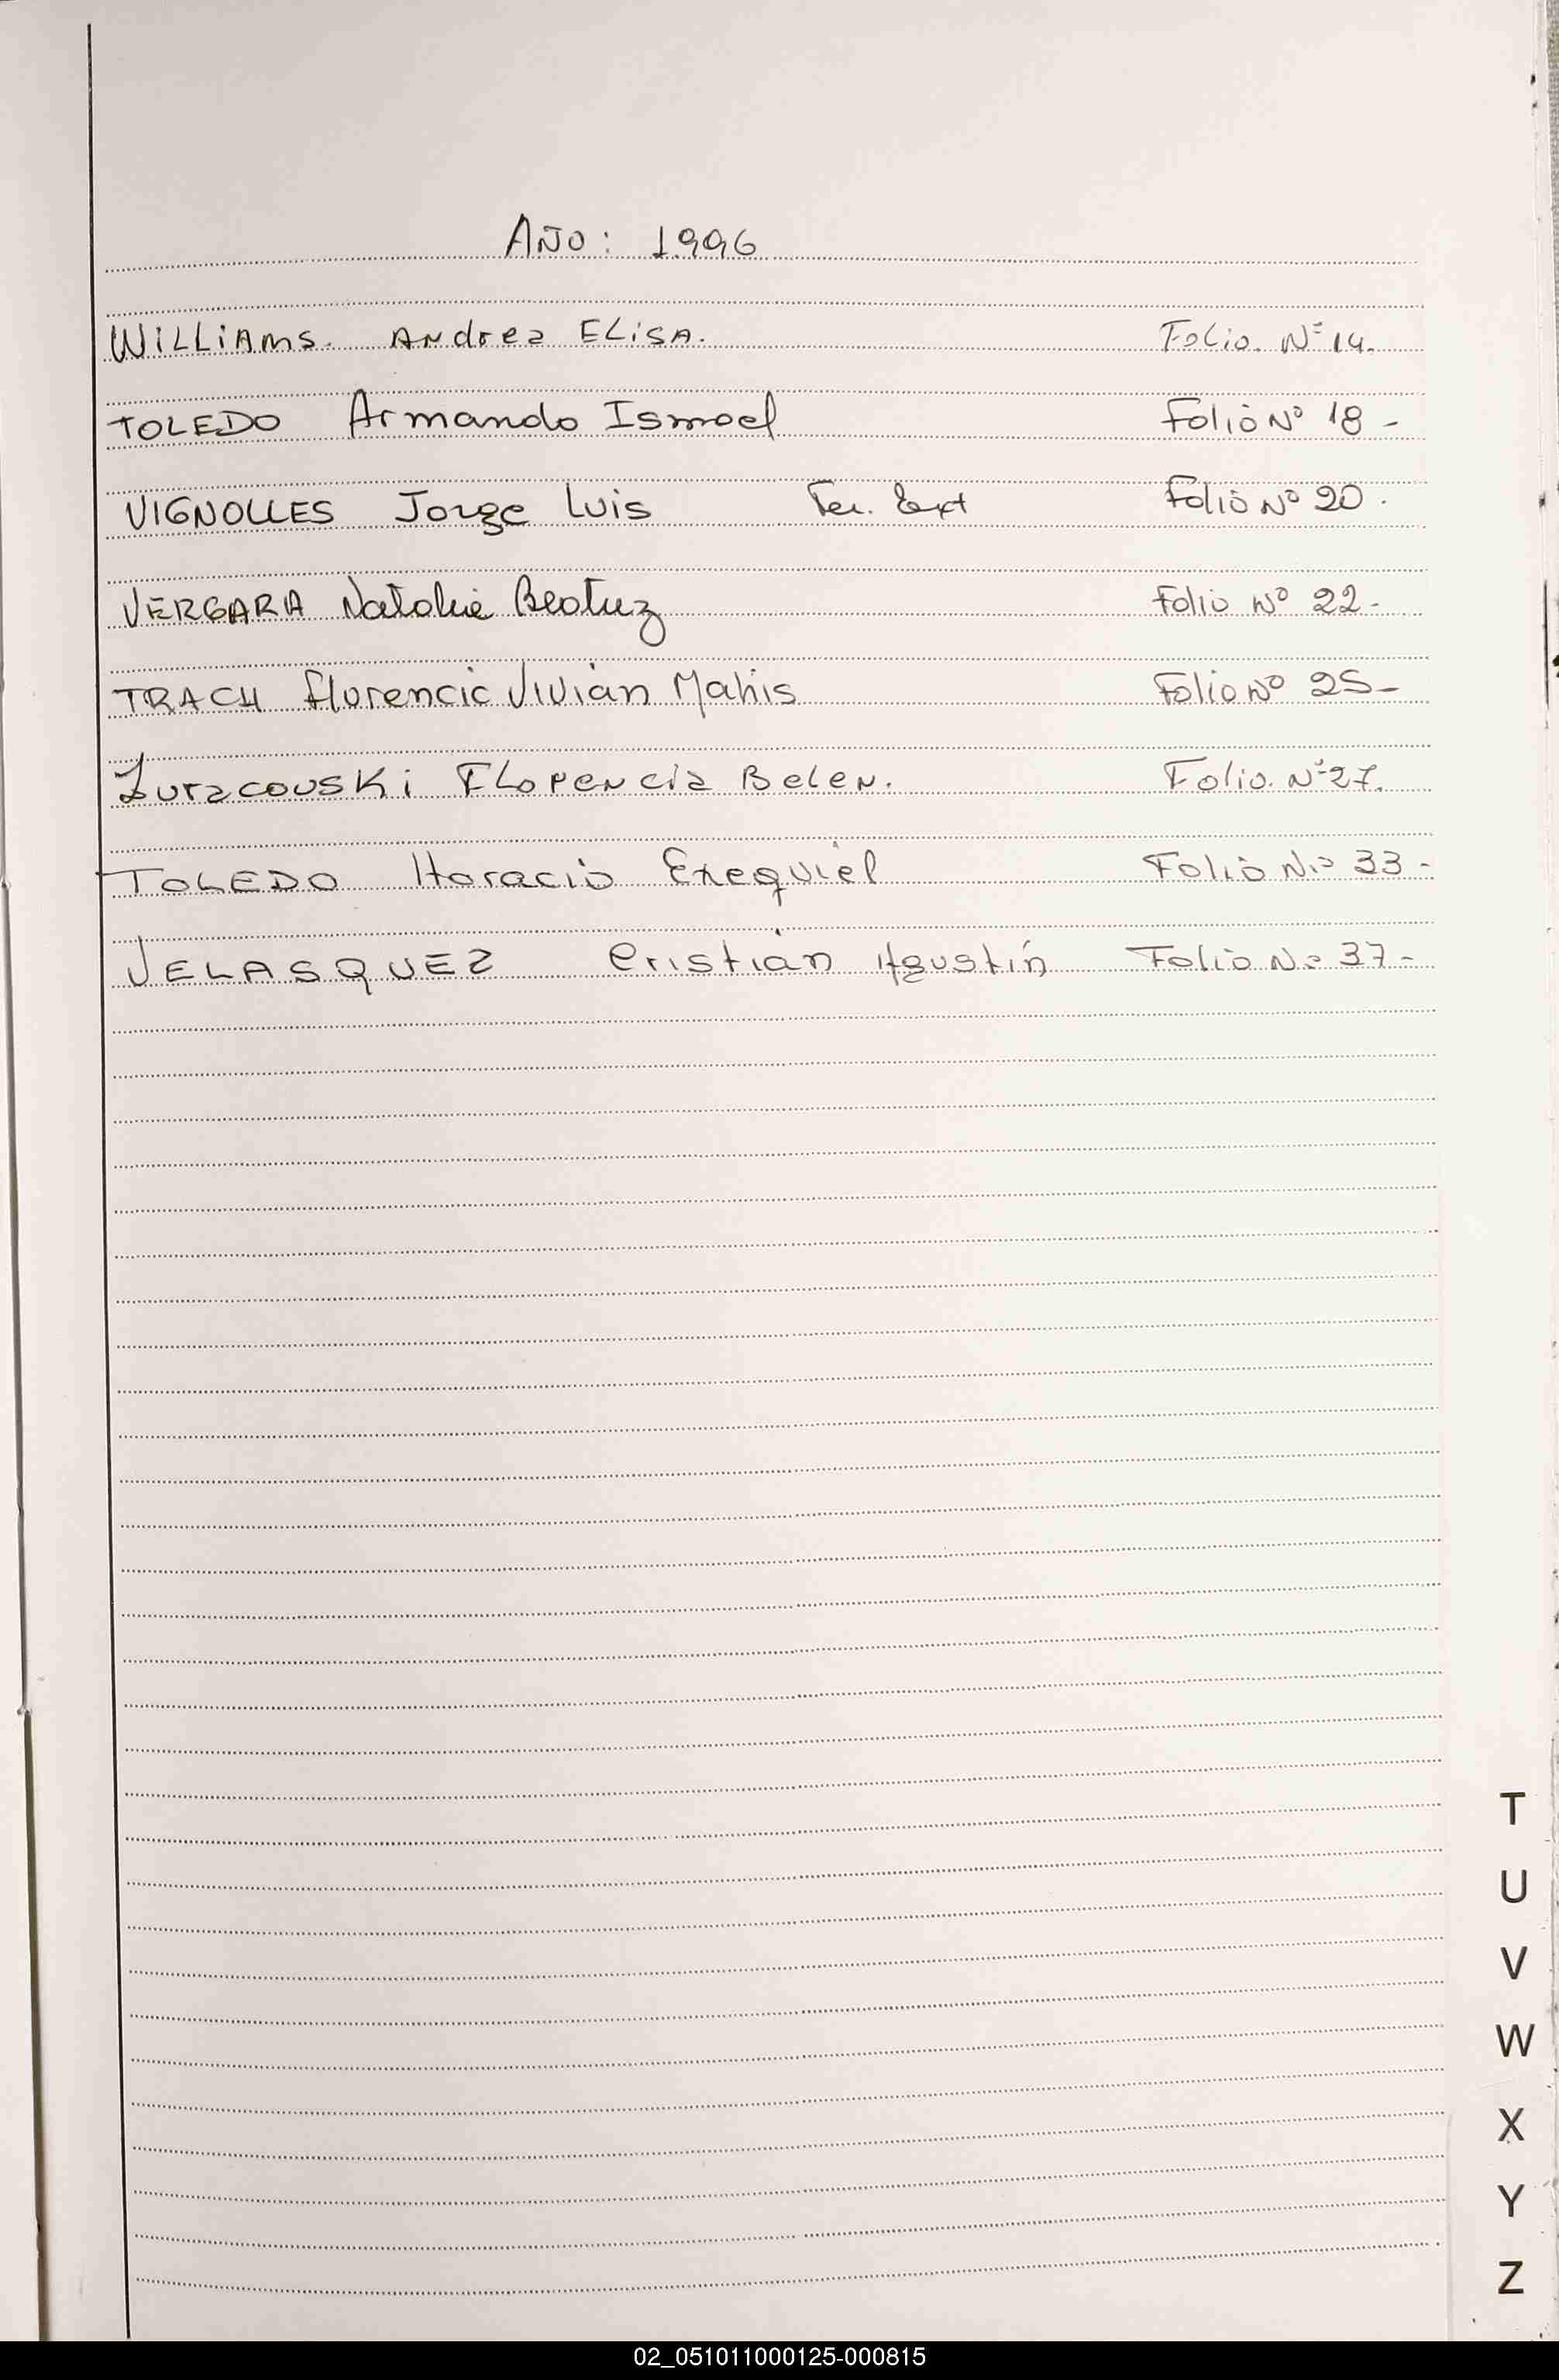 AÑO: 1996
WILLIAMS. ANdrea ELiSA. Folio. Nº 14.
TOLEDO Armando Ismael Folio Nº 18 -
VIGNOLLES Jorge Luis Folio Nº 20.
VERGARA Natalia Beatriz Folio Nº 22-
TRACH Florencia Vivian Mahis Folio Nº 25-
Zuracouski Florencia Belen. Folio. Nº 27.
TOLEDO Horacio Exequiel Folio Nº 33-
VELASQUEZ Cristian Agustín Folio Nº 37-
T
U
V
W
X
Y
Z
02_051011000125-000815